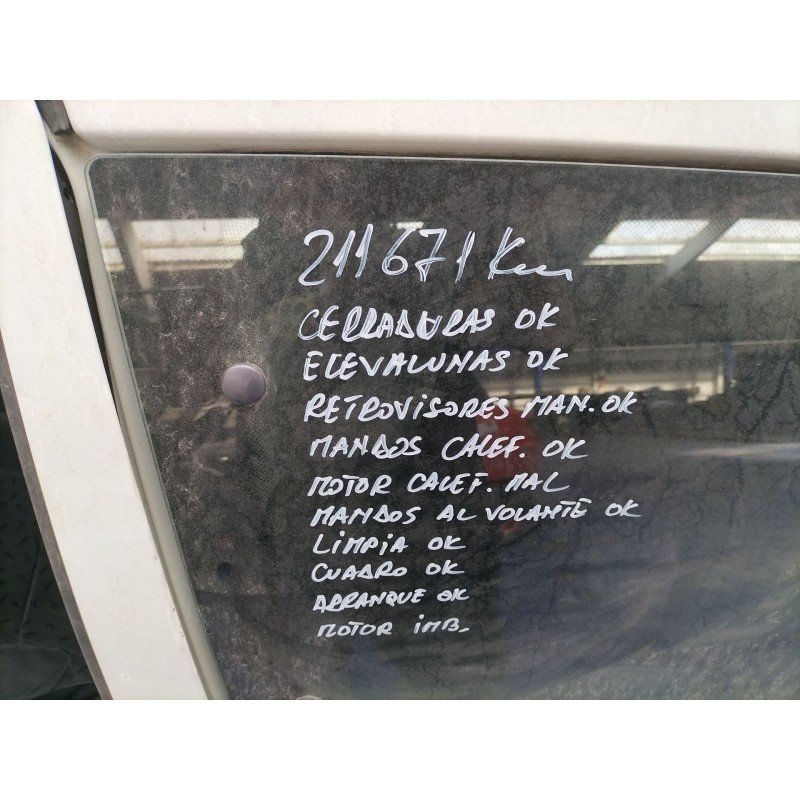 211671 Km
CERRADURAS OK
ELEVALUNAS OK
RETROVISORES MAN. OK
MANDOS CALEF. OK
MOTOR CALEF. MAL
MANDOS AL VOLANTE OK
LIMPIA OK
CUADRO OK
ARRANQUE OK
MOTOR IMB.